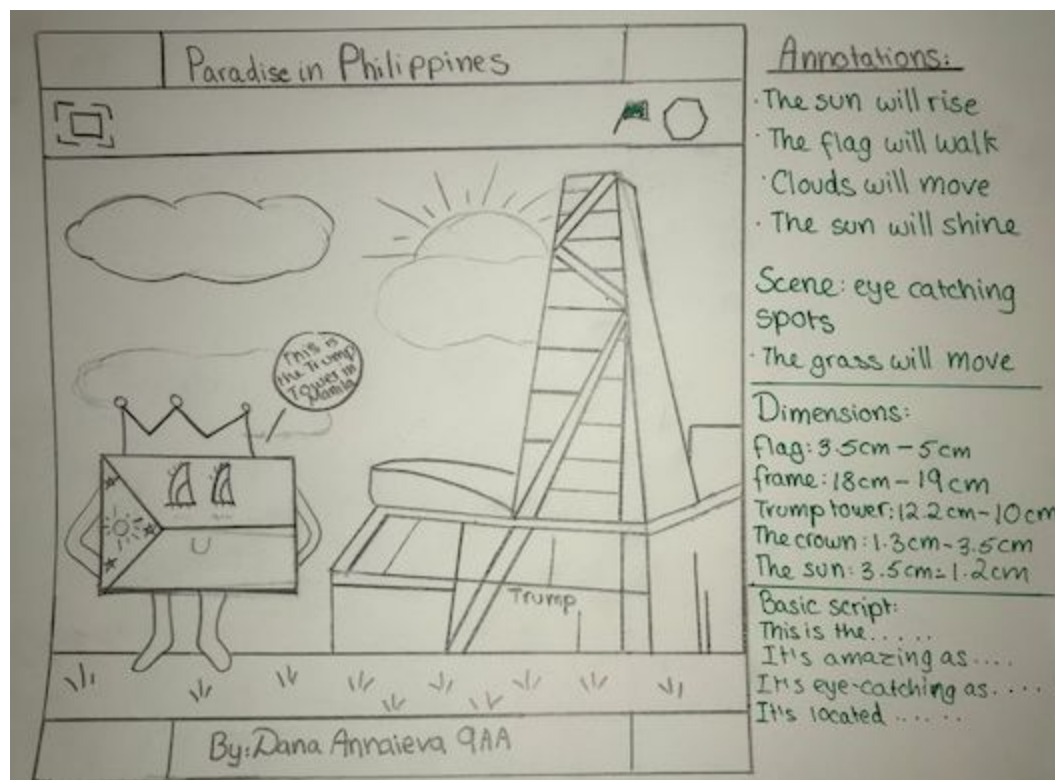 Paradise in Philippines
This is
the Trump
Tower in
Manila
Trump
By: Dana Annaieva 9AA
Annotations:
· The sun will rise
· The flag will walk
· Clouds will move
· The sun will shine
Scene: eye catching
spots
· The grass will move
Dimensions:
flag: 3.5cm - 5cm
frame: 18cm - 19cm
Trump tower: 12.2cm - 10cm
The crown: 1.3cm - 3.5cm
The sun: 3.5cm - 1.2cm
Basic script:
This is the.....
It's amazing as....
It's eye-catching as....
It's located ......